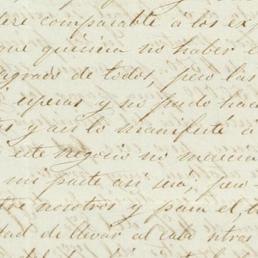 comparable á los ex
que quisiera no haber
agrado de todos, pero las
esperas y no pudo hac
y asi lo manifesté á
este negocio no
mi parte asi será, pero
nosotros y para el t
dad de llevar al cabo otros